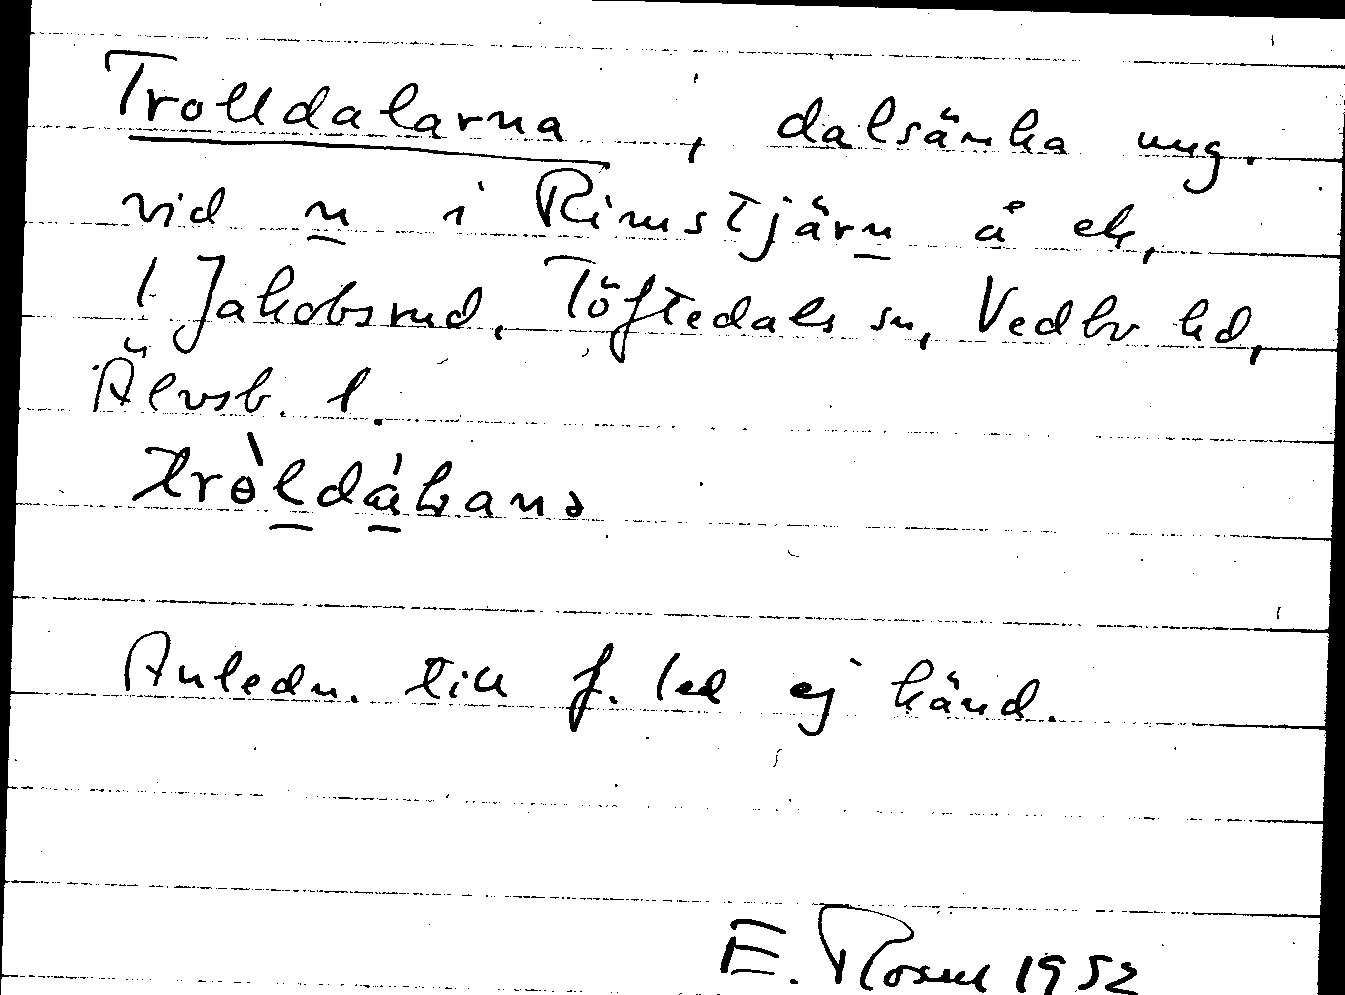 Trolldalarna, dalsänka ung.
vid n i Rimstjärn å ek,
l Jakobsrud, Töftedals sn, Vedbo hd,
Älvsb. l.
Anledn. till f. led ej känd.
E. Rosell 1952